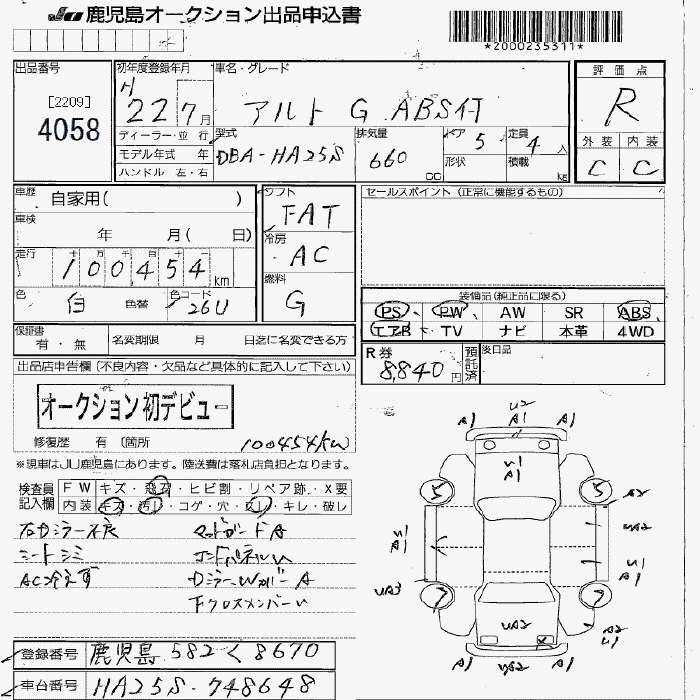 鹿児島オークション出品申込書
*2000235311*
出品番号
[2209]
4058
初年度登録年月
H
22 7月
ディーラー・並 行
モデル年式 年
ハンドル 左・右
車名・グレード
アルト G ABS付
型式
DBA-HA25S
排気量
660
cc
ドア 5
形状
定員 4 人
積載 kg
評価点
R
外装 内装
C C
車歴 自家用( )
車検
年 月( 日)
走行 十 万 千 百 十
100454 km
色 白 色替
色コード 26U
シフト
FAT
冷房
AC
燃料
G
セールスポイント (正常に機能するもの)
装備品(純正品に限る)
PS、PW、AW SR ABS、
エアB TV ナビ 本革 4WD
保証書
有・無
名変期限 月 日迄に名変できる方
R券
8,840円
預託済
後日品
出品店申告欄(不良内容・欠品など具体的に記入して下さい)
オークション初デビュー
修復歴 有 (箇所
100454km
※現車はJU鹿児島にあります。陸送費は落札店負担となります。
検査員記入欄
FW キズ・飛石・ヒビ割・リペア跡・X要
内装 キズ・汚レ・コゲ・穴・ キレ・破レ
右ミラー不良 マッドガードA
シートシミ コンドパネルU
AC冷えず
Dミラー、WカバーA
下クロスメンバーU
登録番号 鹿児島 582 く 8670
車台番号 HA25S-748648
U2
A1 A1 A1
U1
A1
5 5
A2
U1
A1
UA2
U1
A1
UA3
7 7
UA2
UA2
U1
A1 UA2 A1